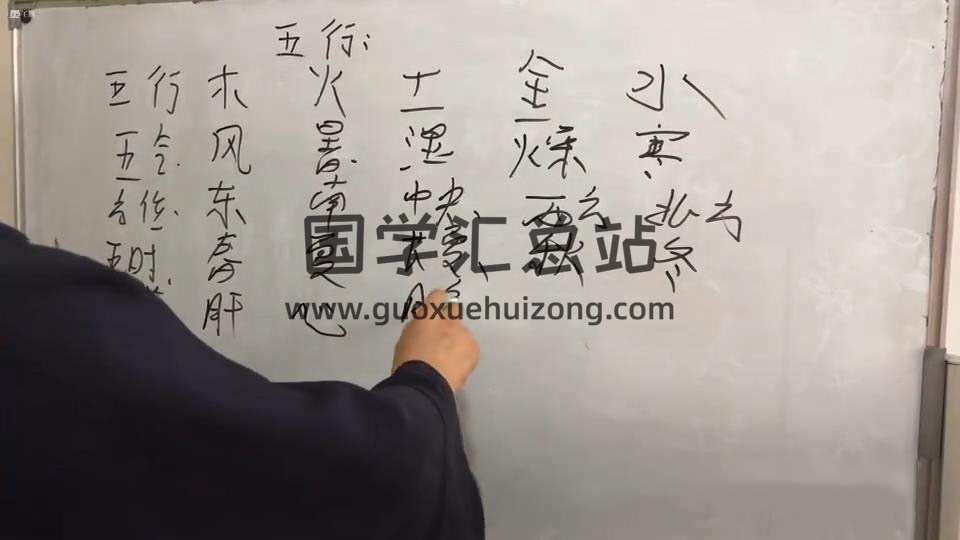 五行：
五行 木 火 土 金 水
五令 风 暑 湿 燥 寒
方位 东 南 中央 西方 北方
五时 春 夏 长夏 秋 冬
肝 心
国学汇总站
www.guoxuehuizong.com